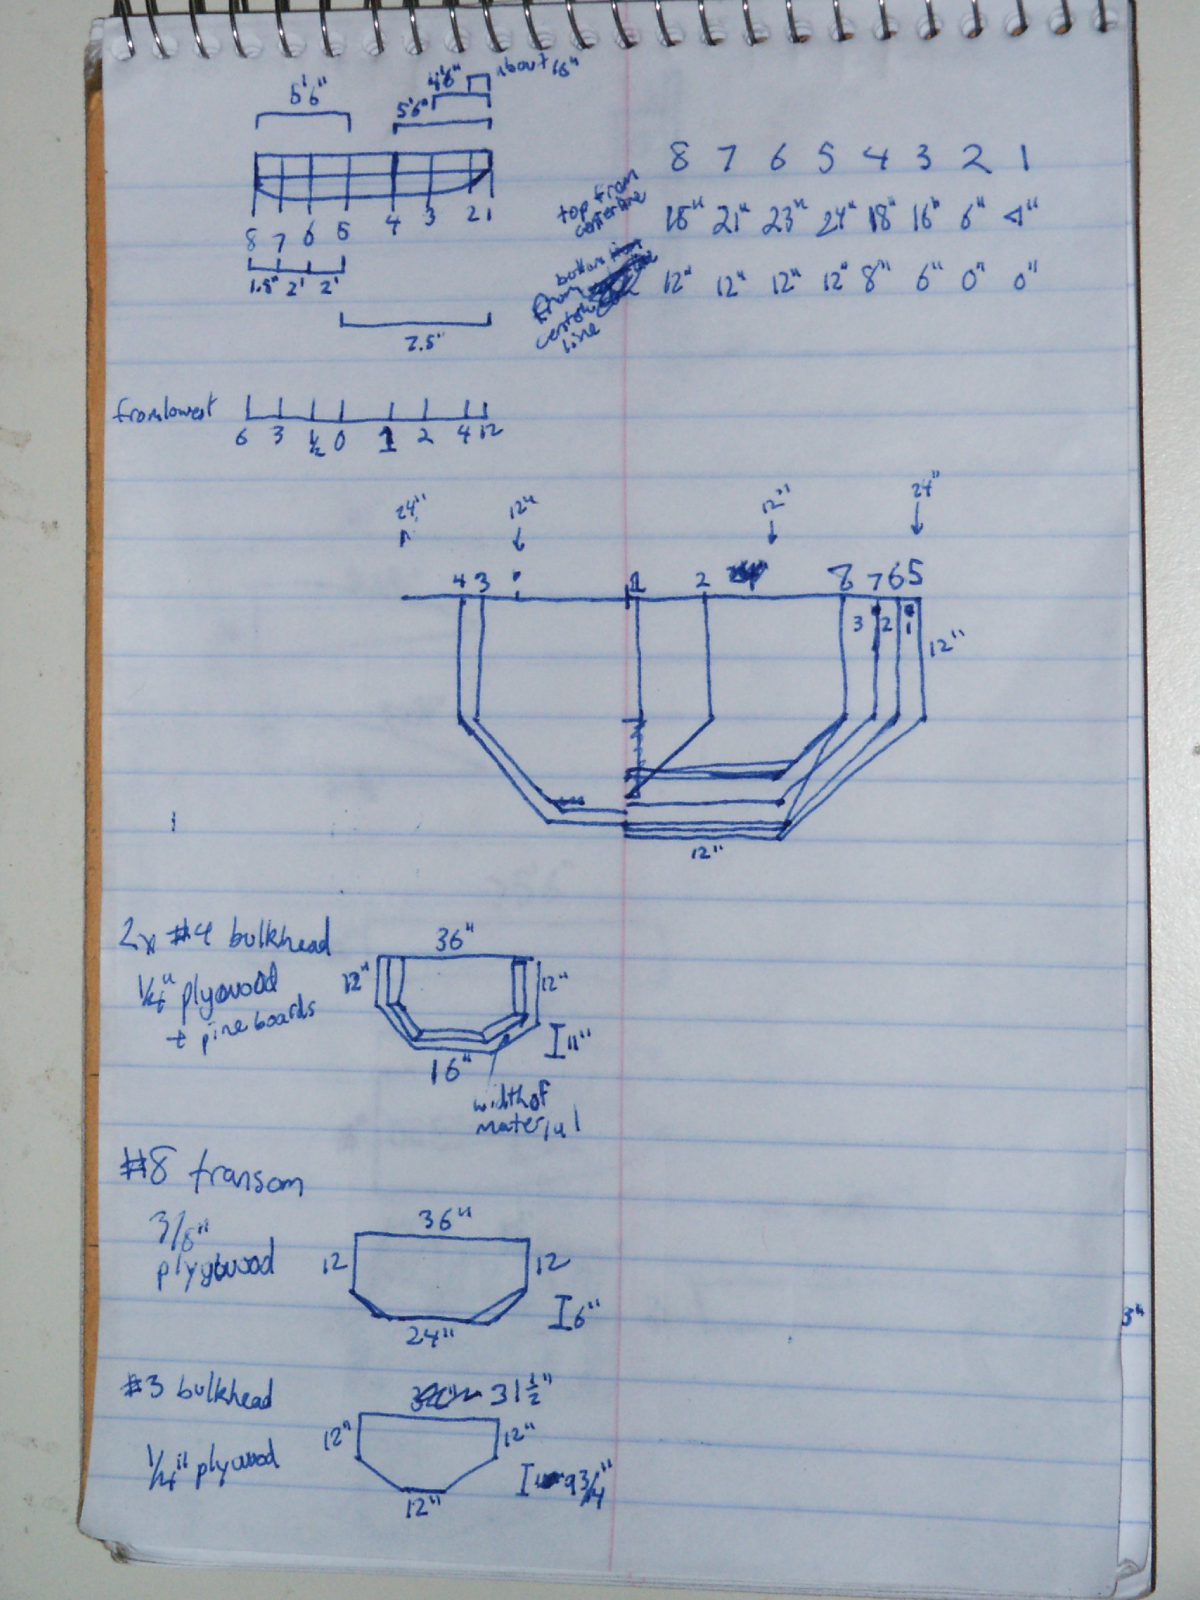 about 18"
4'6"
5'6"
5'6"
8 7 6 5 4 3 2 1
top from
centerline
18" 21" 23" 24" 18" 16" 6" 4"
8 7 6 5 4 3 2 1
1.5' 2' 2'
bottom
from
center
line
12" 12" 12" 12" 8" 6" 0" 0"
7.5'
from lowest
6 3 ½ 0 1 2 4 12
24" 12" 12" 24"
4 3 1 2 8 7 6 5
3 2 1
12"
12"
2x #4 bulkhead
1/4" plywood
+ pine boards
36"
12" 12"
I 11"
16"
width of
material
#8 transom
3/8"
plywood
36"
12 12
I 6"
24"
3"
#3 bulkhead
1/4" plywood
31 ½"
12" 12"
I 9 3/4"
12"